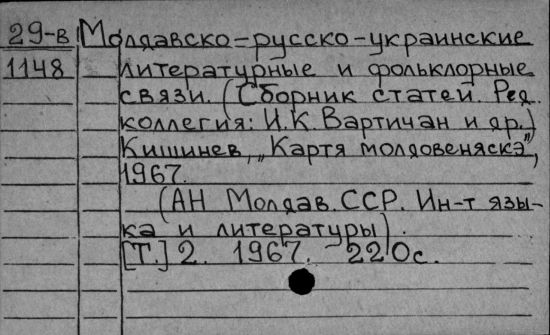 29-в Молдавско-русско-украинские
1148 литературные и фольклорные
связи. (Сборник статей. Ред.
коллегия: И.К. Вартичан и др.)
Кишинев, „Картя молдовеняскэ",
1967.
(АН Молдав. ССР. Ин-т язы-
ка и литературы).
[Т.] 2. 1967. 220с.